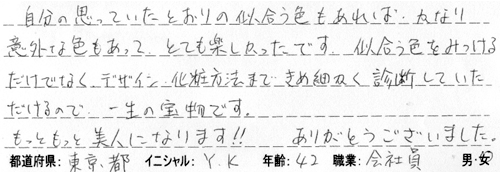 自分の思っていたとおりの似合う色もあれば、かなり
意外な色もあって、とても楽しかったです。似合う色をみつける
だけでなく、デザイン、化粧方法まできめ細かく診断していた
だけるので、一生の宝物です。
もっともっと美人になります!! ありがとうございました。
都道府県: 東京都 イニシャル: Y.K 年齢: 42 職業: 会社員 男・女